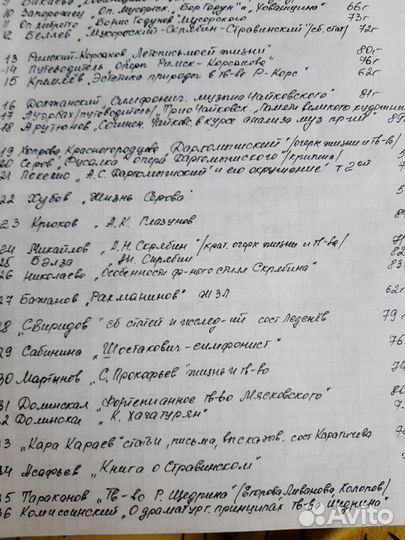 10 Запорожец "Оп. Мусоргск. "Бор Годун" и "Хованщина" 66г
11 Оп. либрето "Борис Годунов" Мусоргского 73г
12 Беляев "Мусоргский-Скрябин-Стравинский" /сб. стат/ 72г
13 Римский-Корсаков Летопись моей жизни 80г
14 Путеводитель Оперы Римск-Корсакова 76г
15 Кремлёв "Эстетика природы в тв-ве Р-Корс" 62г
16 Должанский Симфонич. музыка Чайковского" 81г
17 /путеводитель/ "Трио Чайковск. "Памяти великого художника
18 Арутюнов "Сочинен. Чайков. в курсе анализа муз пр-ий"
19 Хопрова Красногородцева Даргомыжский" /очерк жизни и тв-ва/
20 Серов "Русалка" опера Даргомыжского"
21 Пекелис "А.С. Даргомыжский и его окружение" т 2ой
22 Хубов "Жизнь Серова"
23 Крюков "А.К. Глазунов
24 Михайлов "А.Н. Скрябин" /крат. очерк жизни и тв-ва/
25 Бэлза "А.Н. Скрябин" 82
26 Николаева "Особенности ф-ного стиля Скрябина" 83
27 Бажанов "Рахманинов" ЖЗЛ 62г
28 "Свиридов" сб статей и исслед-ий сост Леденёв 79
29 Сабинина "Шостакович-симфонист" 76
30 Мартынов "С. Прокофьев" жизнь и тв-во
31 Долинская "Фортепианное тв-во Мясковского" 80
32 Долинская "К. Хачатурян"
33 "Кара Караев" статьи, письма, высказыв. сост Карагичева
34 Асафьев "Книга о Стравинском"
35 Тараканов "Тв-во Р. Щедрина" /Егорова, Ливанова, Холопов/
36 Комиссинский "О драматург. принципах тв-ва Щедрина"
Avito